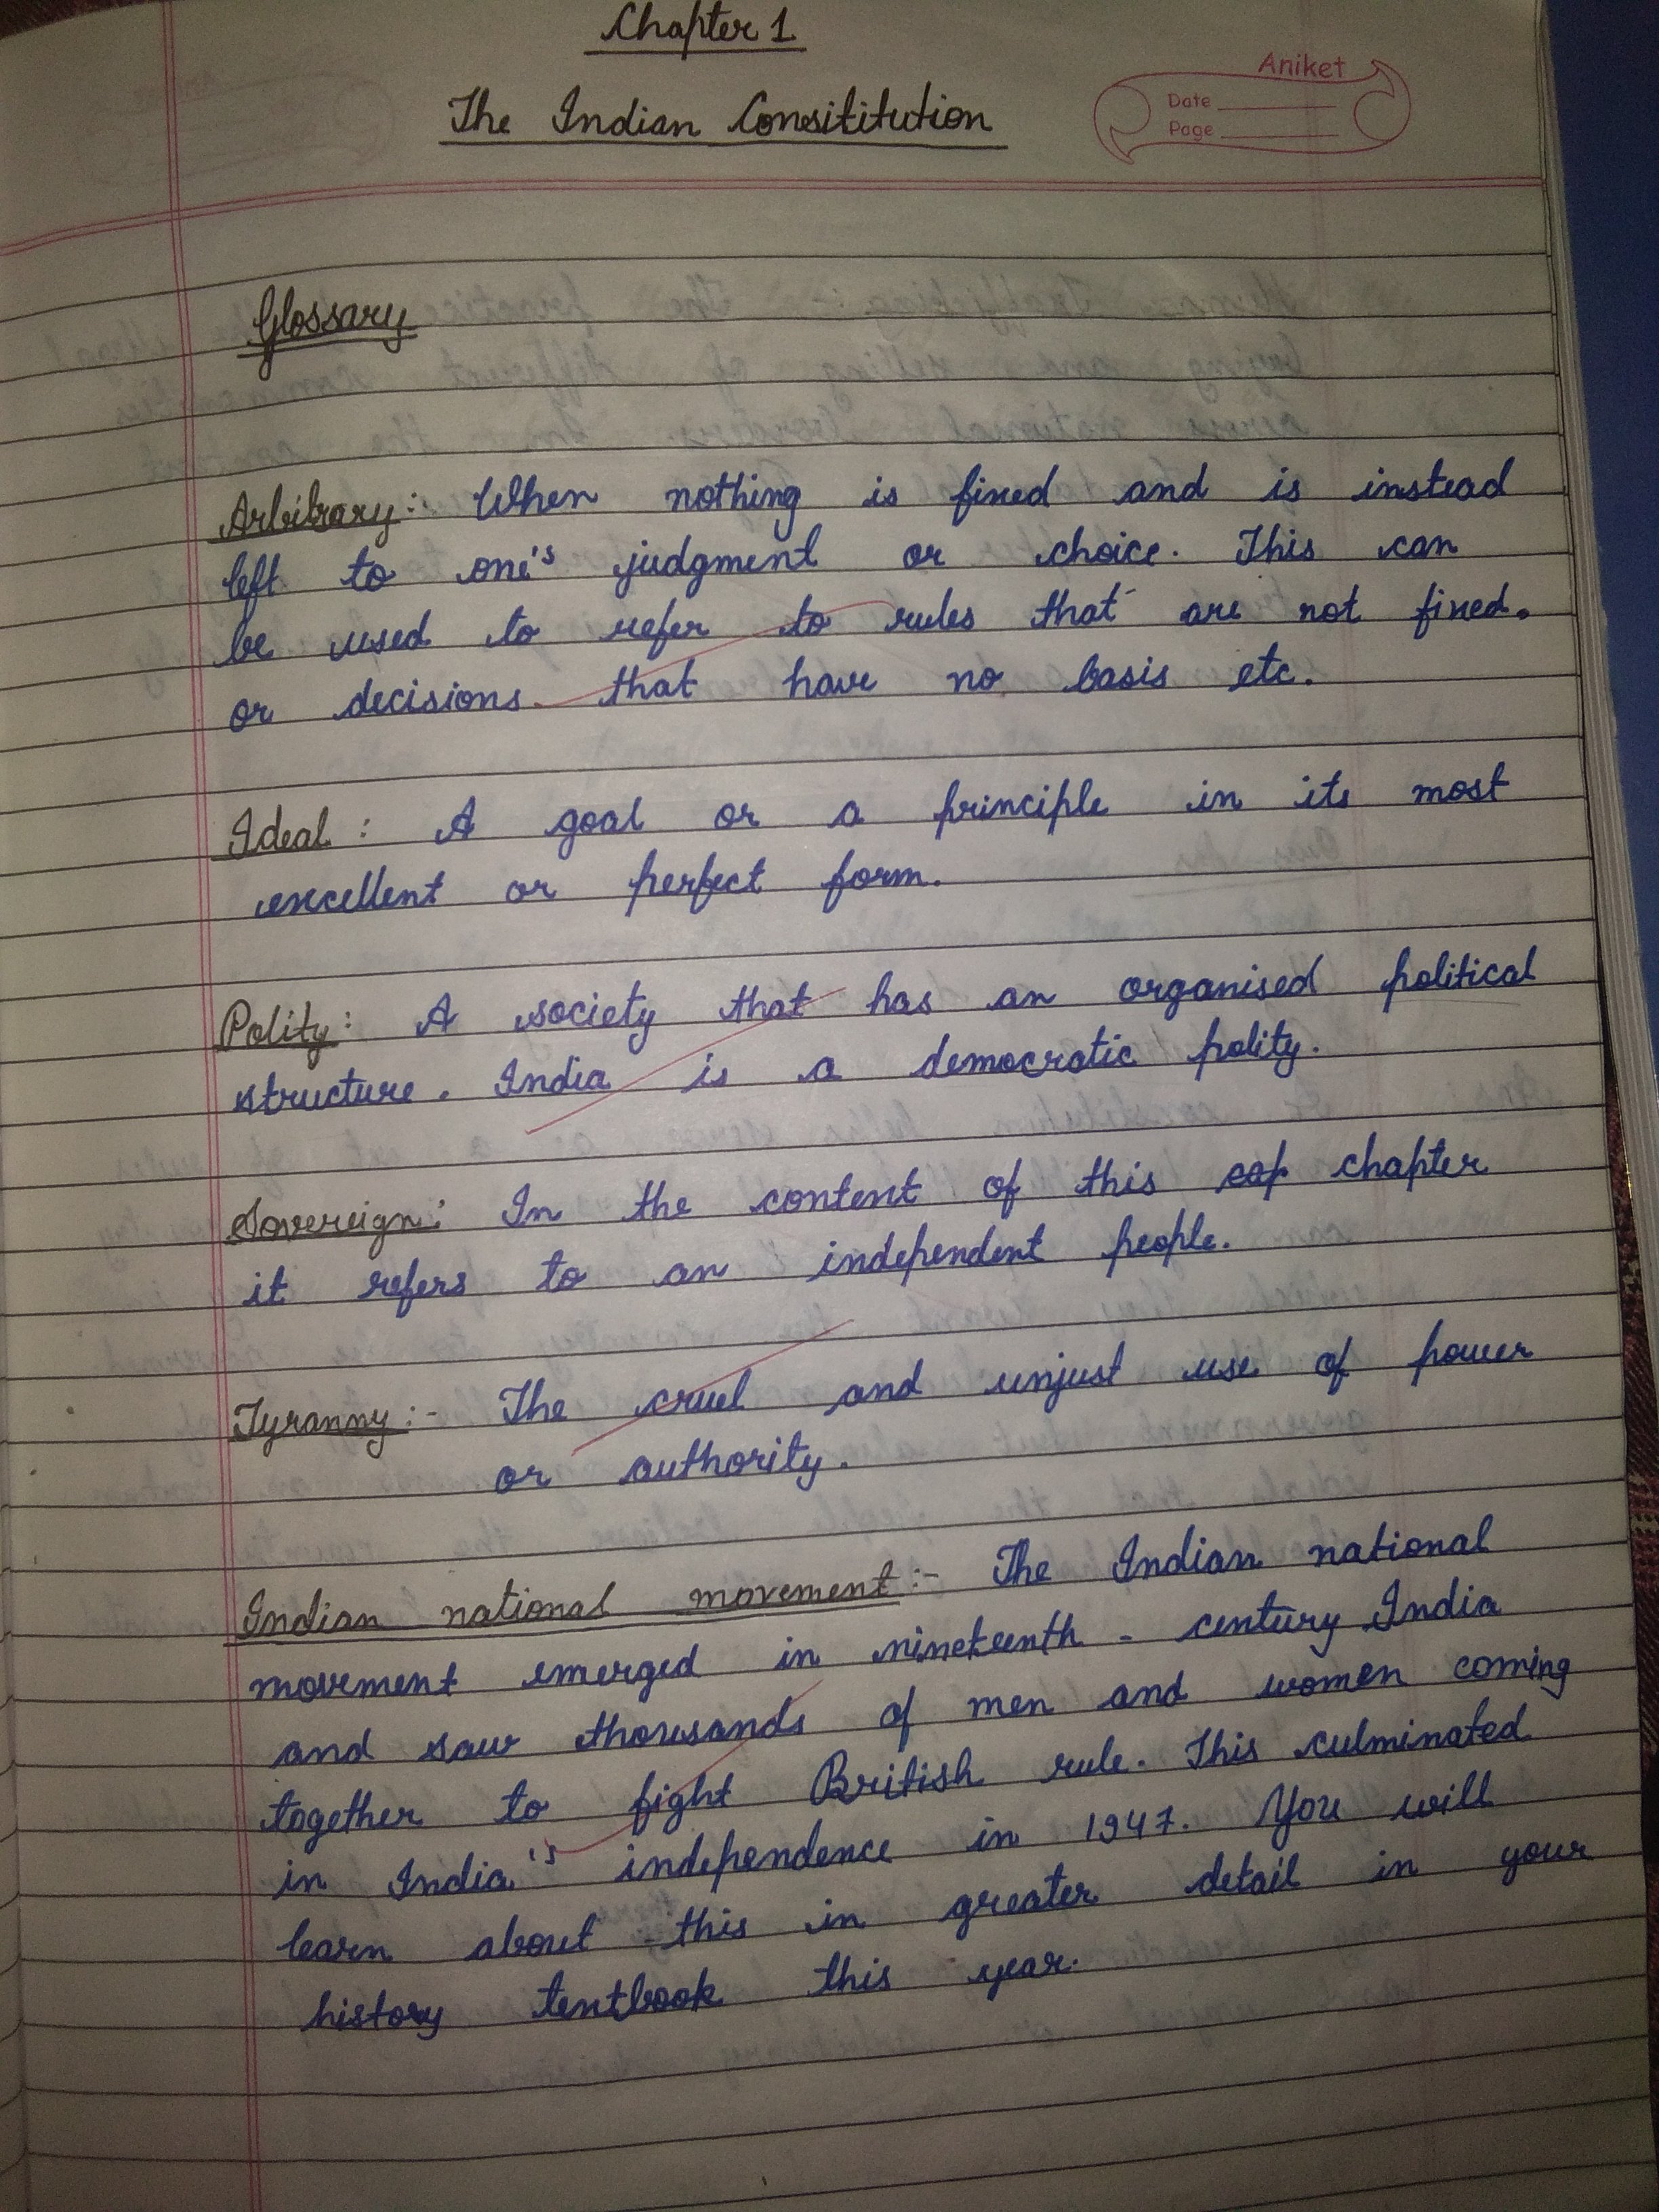 Chapter 1
Aniket
Date
Page
The Indian Consititution
Glossary
Arbibrary:- When nothing is fixed and is instead
left to one's judgment or choice. This can
be used to refer to rules that are not fixed.
or decisions that have no basis etc.
Ideal: A goal or a principle in its most
excellent or perfect form.
Polity: A society that has an organised political
structure. India is a democratic polity.
Sovereign: In the content of this cap chapter
it refers to an independent people.
Tyranny:- The cruel and unjust use of power
or authority.
Indian national movement:- The Indian national
movement emerged in nineteenth - century India
and saw thousands of men and women coming
together to fight British rule. This culminated
in India's independence in 1947. You will
learn about this in greater detail in your
history textbook this year.